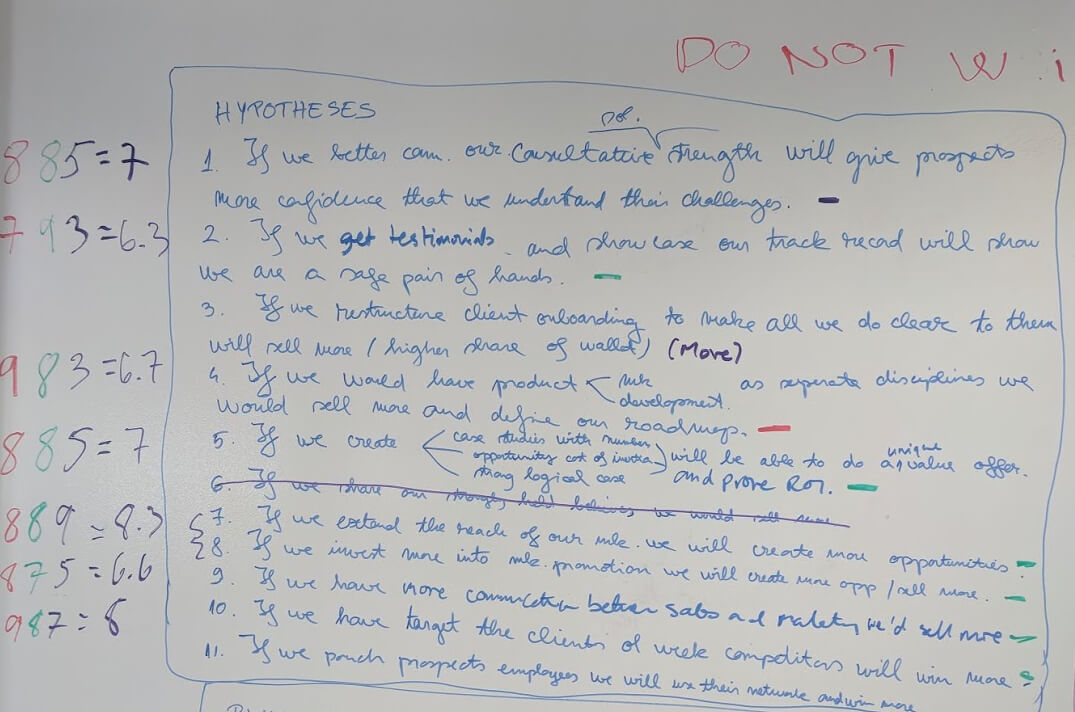 DO NOT W i
HYPOTHESES
885=7
1. If we better com. our consultative strength will give prospects
more confidence that we understand their challenges. -
793=6.3
2. If we get testimonials and showcase our track record will show
we are a safe pair of hands. -
3. If we restructure client onboarding to make all we do clear to them
will sell more / higher share of wallet) (More)
983=6.7
4. If we would have product < mk development. as seperate disciplines we
would sell more and define our roadmap. -
885=7
5. If we create < case studies with number
opportunity cost of
strong logical case
will be able to do a unique value offer.
and prove ROI. -
6. If we share our strongly held believes we would sell more
889=8.3
7. If we extend the reach of our mk. we will create more oppportunities -
875=6.6
8. If we invest more into mk. promotion we will create more opp / sell more. -
9. If we have more better sales and we'd sell more -
987=8
10. If we have target the clients of week competitors will win more
11. If we poach prospects employees we will use their network and win more